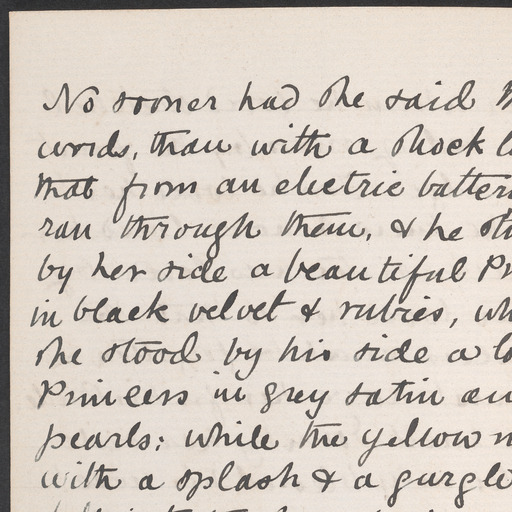 No sooner had she said
words, than with a shock
that from an electric
ran through them, & he
by her side a beautiful
in black velvet & rubies,
she stood by his side a
Princess in grey satin
pearls; while the yellow
with a splash & a gurgle